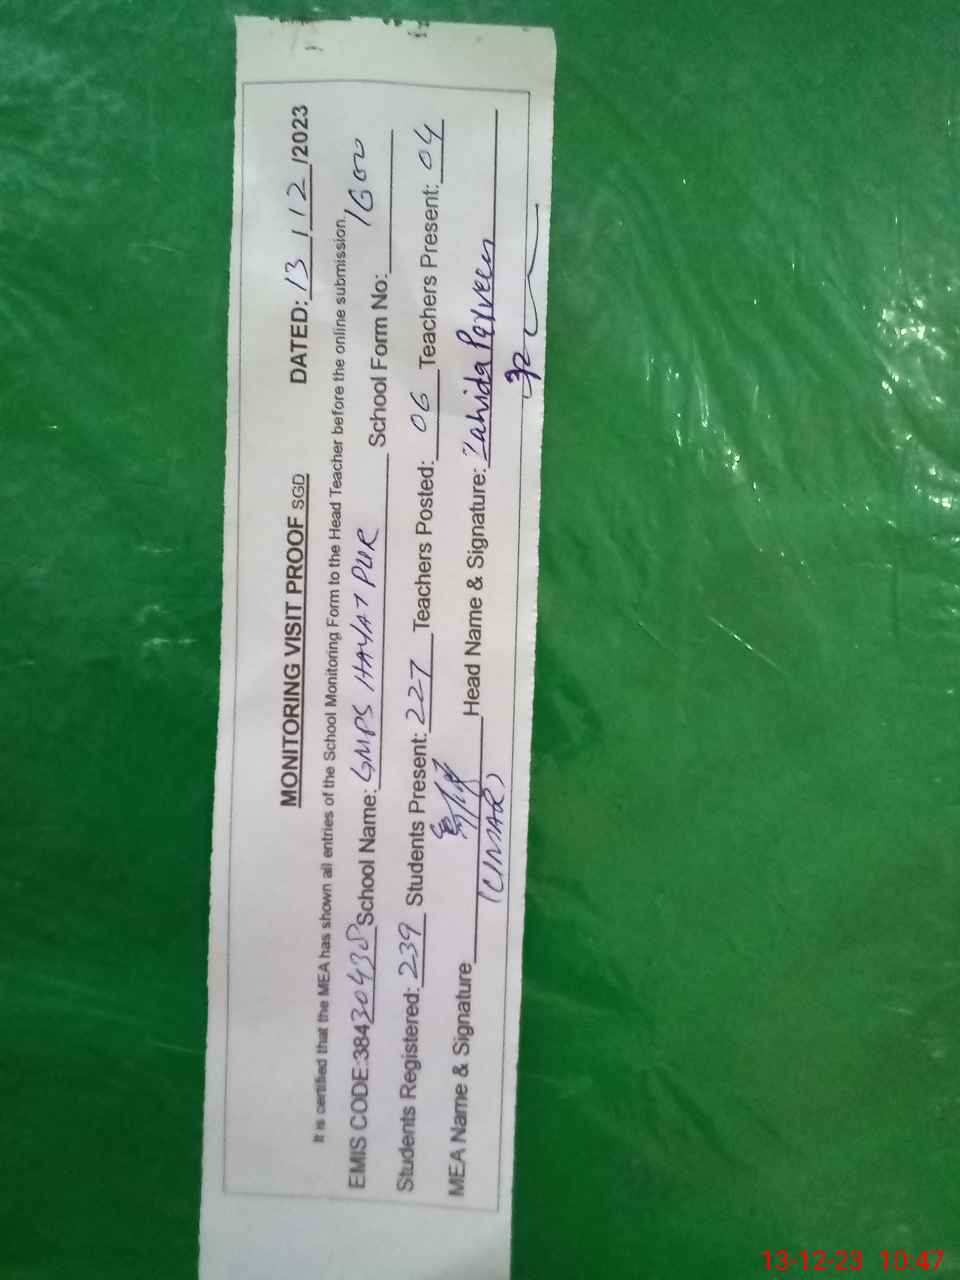 MONITORING VISIT PROOF SGD DATED: 13/12/2023
It is certified that the MEA has shown all entries of the School Monitoring Form to the Head Teacher before the online submission.
EMIS CODE:38430438 School Name: GMPS HAYAT PUR School Form No: 1600
Students Registered: 239 Students Present: 227 Teachers Posted: 06 Teachers Present: 04
MEA Name & Signature Head Name & Signature: Zahida Perveen
(UMAR)
13-12-23 10:47